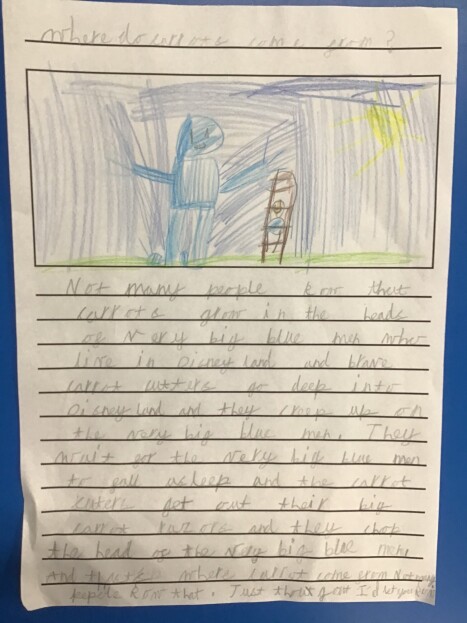 Where do carrots come from?
Not many people know that
carrots grow in the heads
of very big blue men who
live in Disney land and brave
carrot cutters go deep into
Disney land and they creep up on
the very big blue men. They
wait for the very big blue men
to fall asleep and the carrot
cuters get out their big
carrot razors and they chop
the head of the very big blue men.
And that's where carrot come from Not many
people know that. Just thout I'd let you